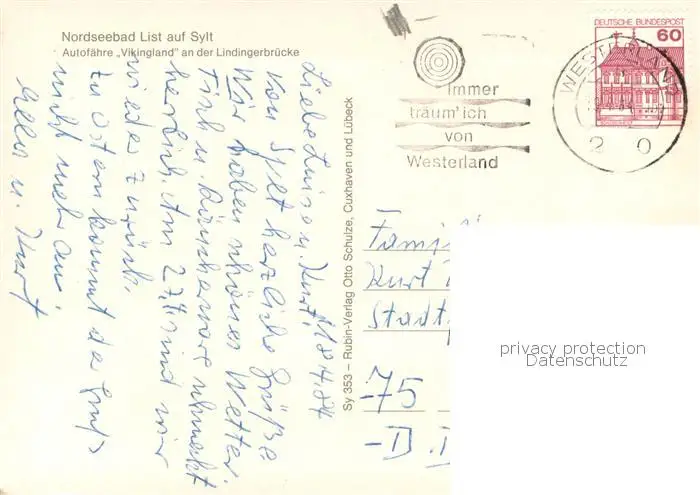 Nordseebad List auf Sylt
Autofähre „Vikingland" an der Lindingerbrücke
18.4.84
Liebe Luise u. Kurt,
von Sylt herzliche Grüße
Wir haben schönes Wetter.
Fisch u. Räucherware schmeckt
herrlich. Am 27.4. sind wir
wieder zurück.
Zu Ostern kommt da
nicht mehr an.
u. Kurt
Sy 353 – Rubin-Verlag Otto Schulze, Cuxhaven und Lübeck
immer
träum' ich
von
Westerland
WESTERLAND
2 0
DEUTSCHE BUNDESPOST
60
Famili
Kurt
Stadt
75
D
privacy protection
Datenschutz